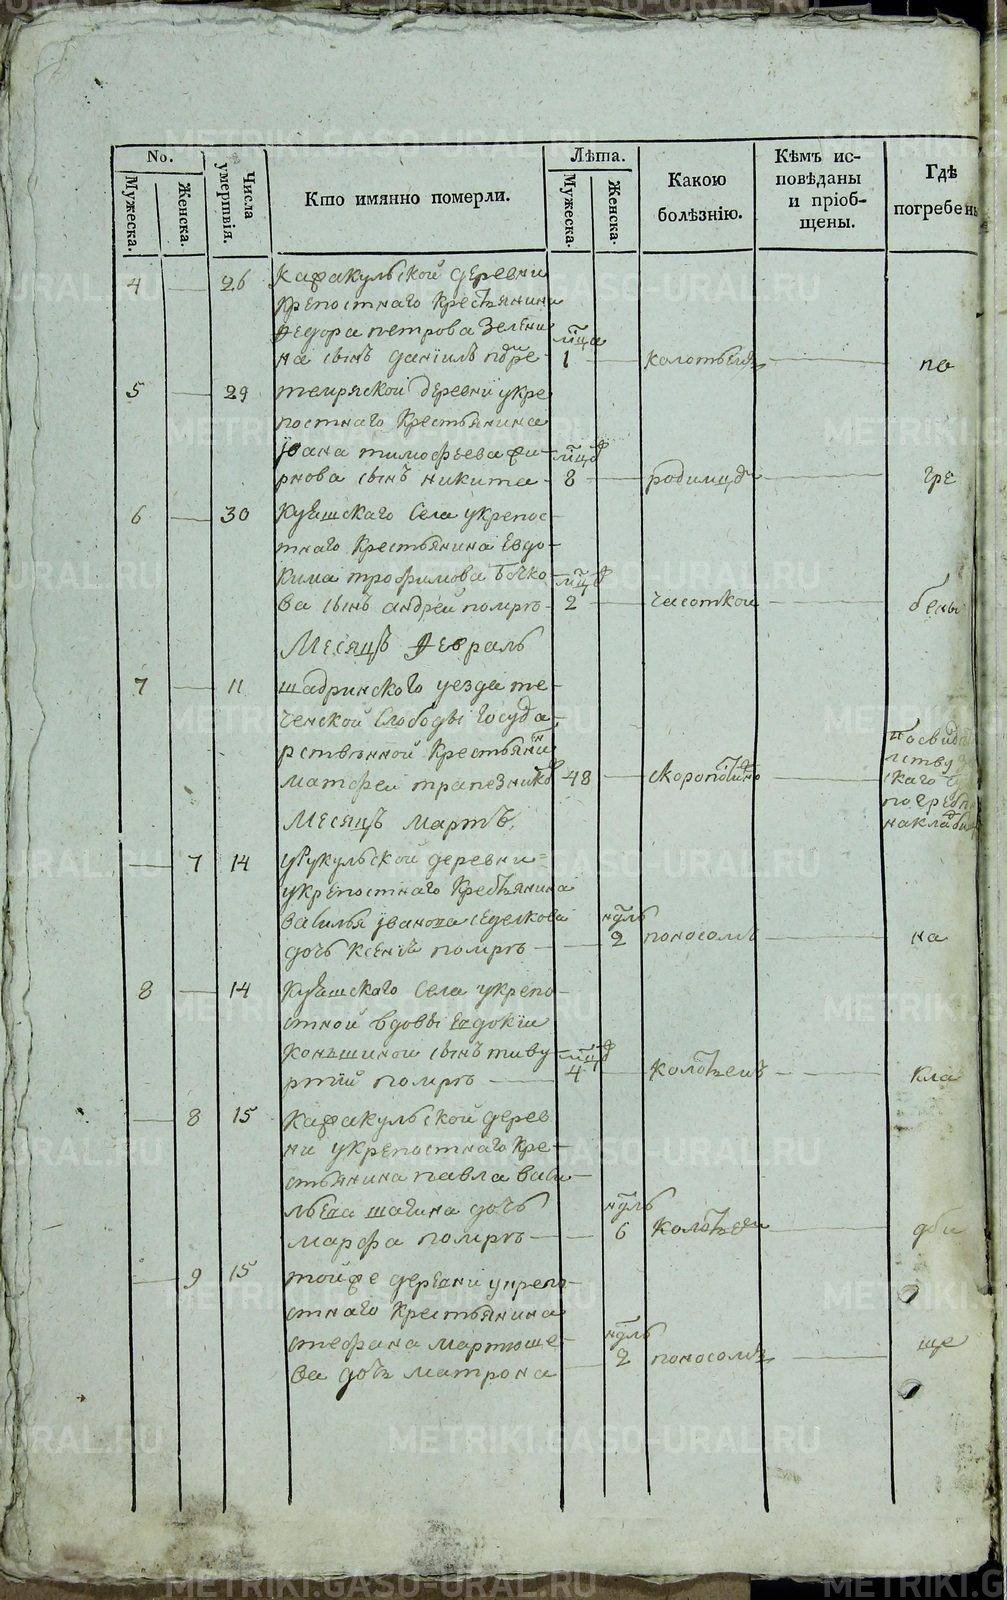 No.
Мужеска.
Женска.
Числа умертвія.
Кто имянно померли.
Лѣта.
Мужеска.
Женска.
Какою болѣзнію.
Кѣмъ ис-
повѣданы
и пріоб-
щены.
Гдѣ
погребены
4 26 Каракульской деревни
крепостнаго крестьянина
Федора петрова Зелени
на сынъ даніилъ мца
1 колотьемъ по
5 29 деревни укре
постнаго Крестьянина
Івана тимофеева
сынъ никита мцов
8 родимцо гре
6 30 Села укрепос-
тнаго Крестьянина Евдо-
кима трофимова Бочко мцов
ва сынъ андрей помръ 2 чесоткой бены
Месяцъ Февраль
7 11 шадринского уезда те-
ченской Слободы госуда-
рственной Крестьянин
матфеи трапезников 48 скоропостижно
Посвидѣте
лству
скаго
погребен
накладби
Месяцъ Мартъ
7 14 деревни
укрепостнаго Крестьянина
Василья іванова седелкова нуль
дочь Ксенія помръ 2 поносомъ на
8 14 Села укрепо-
стной вдовы Евдокіи
Конъшиной сынъ тиву- мцов
ртій помръ 4 колотьемъ кла
8 15 Каракульской дерев
ни укрепостнаго кре-
стьянина павла васи-
льева шагина дочь нуль
марфа помръ 6 дби
9 15 тойже деревни укрепо-
стнаго Крестьянина
стефана мартюше- нуль
ва дочь матрона 2 поносомъ ще
METRIKI.GASO-URAL.RU